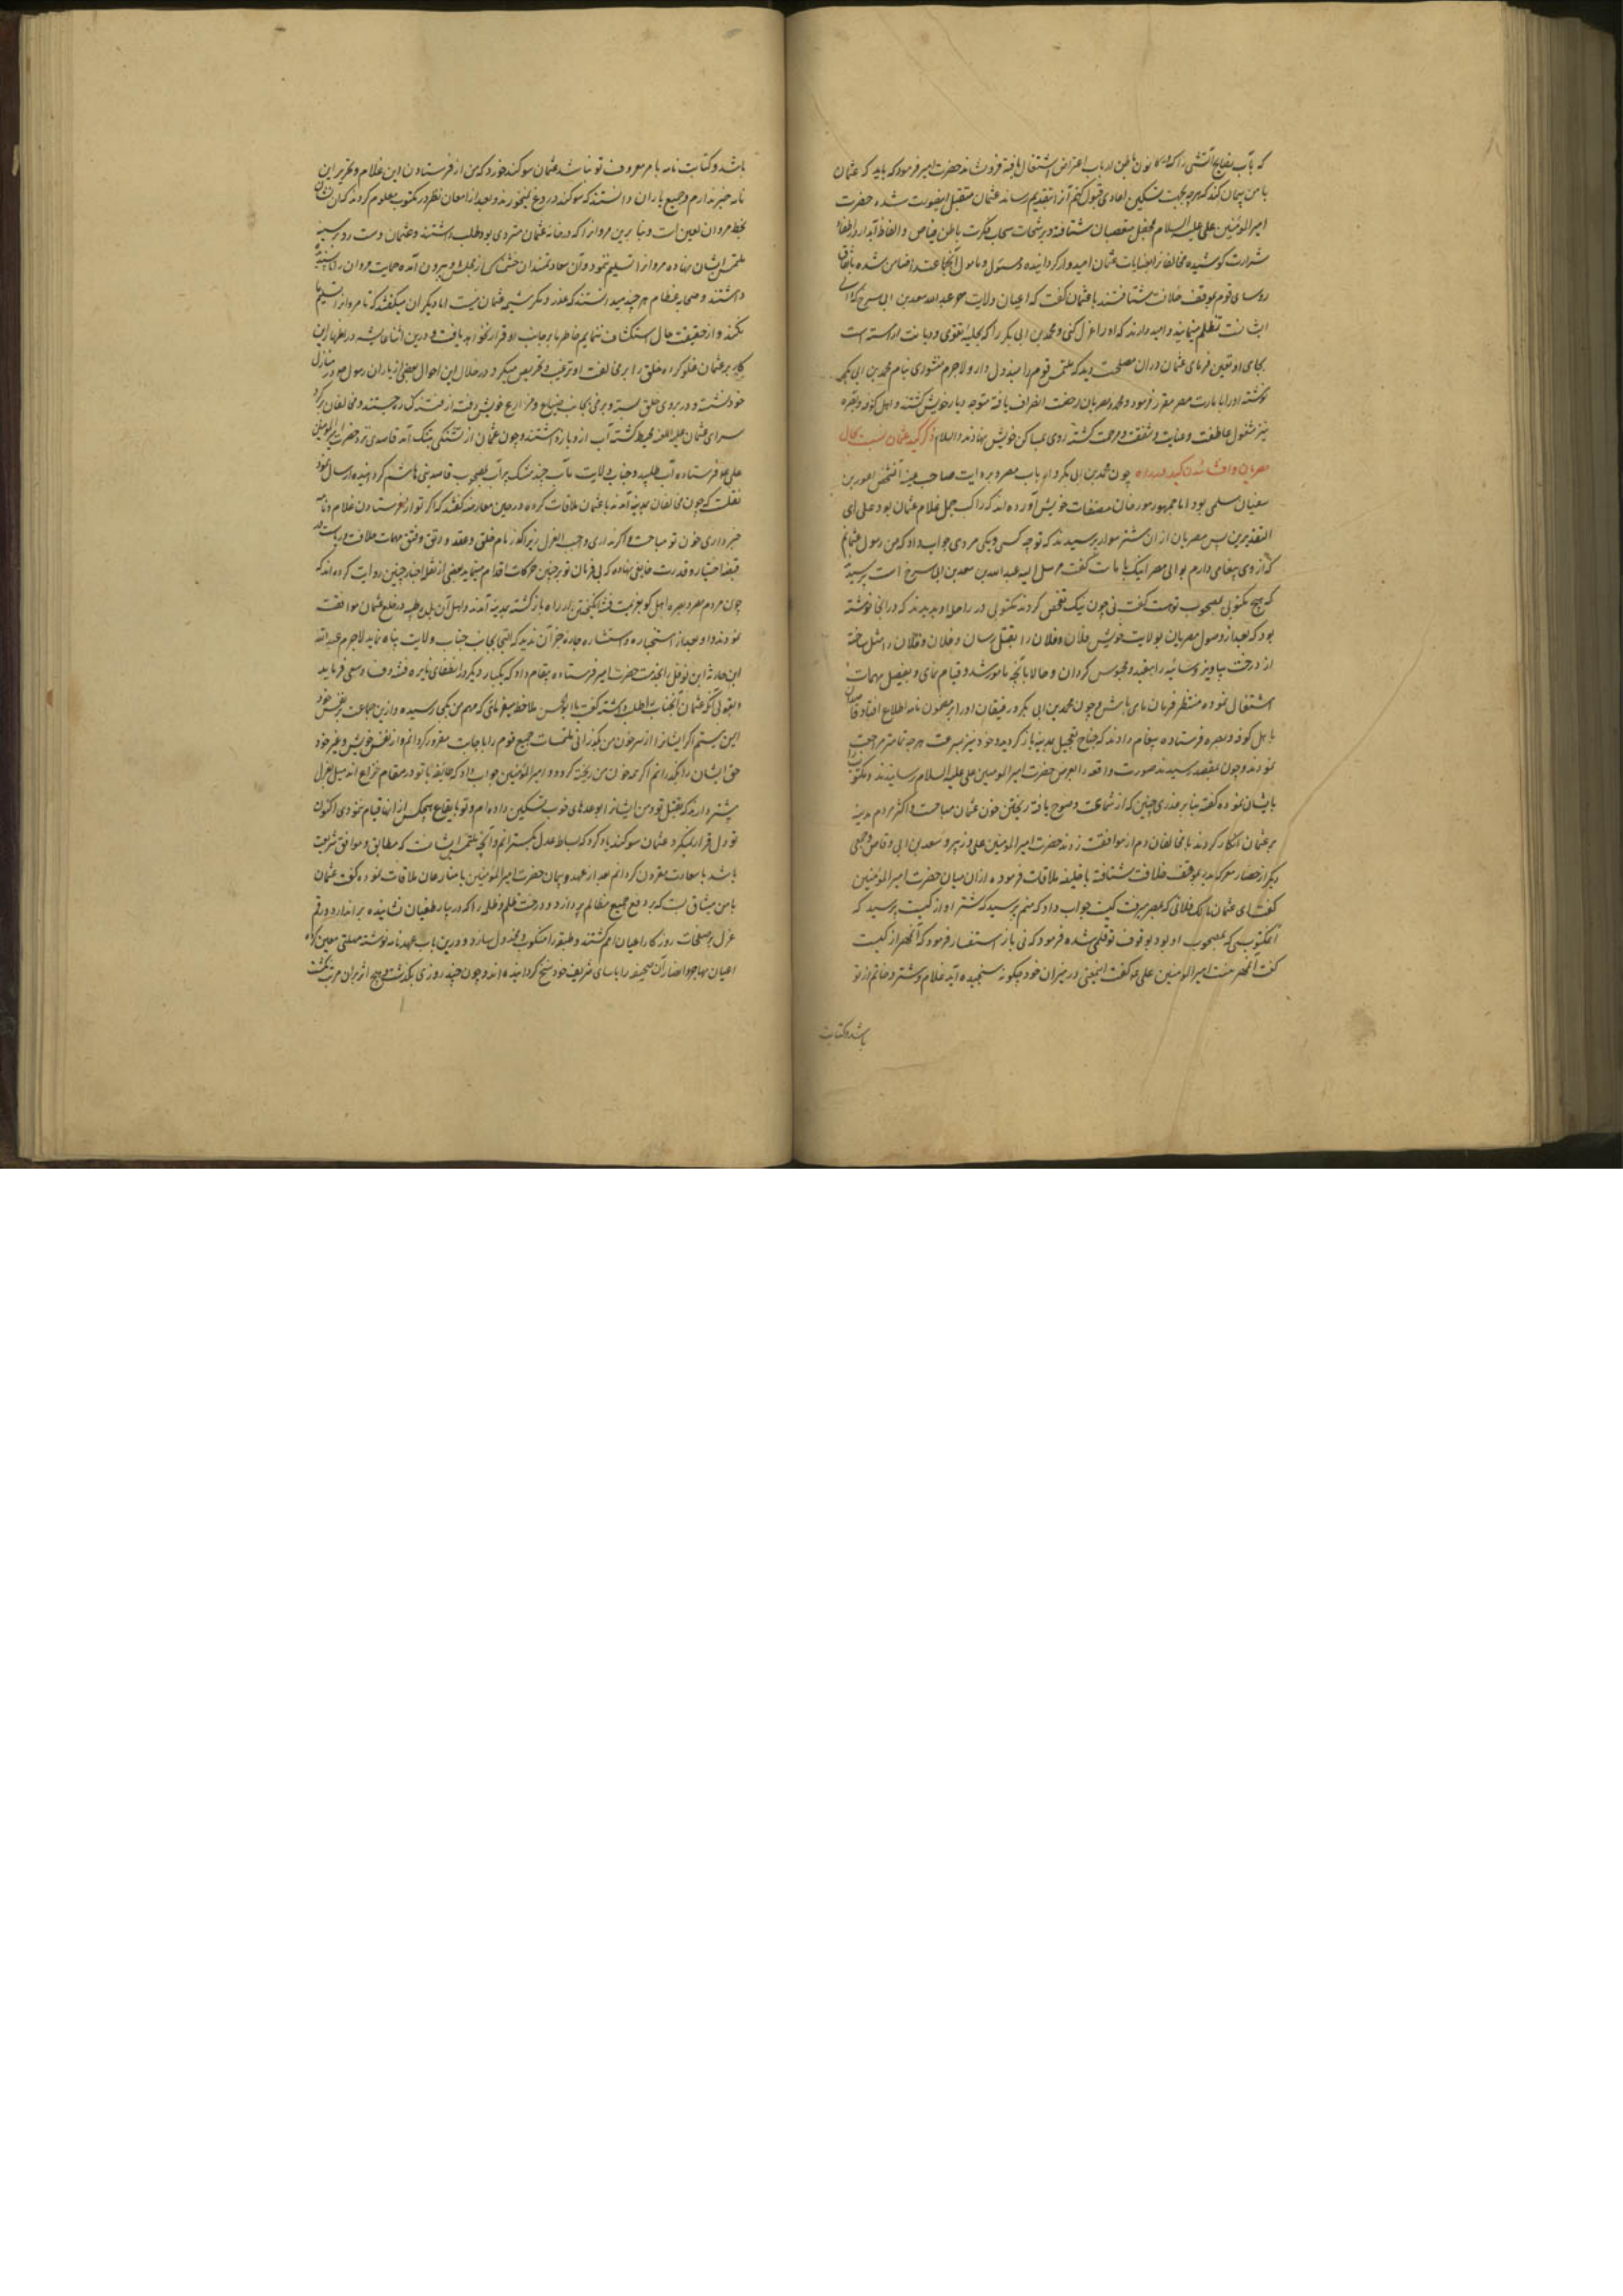 که بآب نصایح آتشی را که در کانون باطن ارباب اعتراض اشتعال یافته فرو نشاند حضرت امیر فرمود که باید که عثمان
با من پیمان کند که هر چه بجهت تسکین اعادی قبول کنم آنرا بتقدیم رساند عثمان متقبل اینصورت شده حضرت
امیرالمؤمنین علی علیه السلام بمحفل متعصبان شتافته و برشحات سحاب فکرت باطن فیاض و الفاظ آبدار در اطفاء
شرارت کوشیده مخالفانرا بعنایات عثمان امیدوار گردانیده و مسئول و مأمول آنجماعت را ضامن شده باتفاق
روسای قوم بموقف خلافت شتافتند با عثمان گفت که اعیان ولایت مصر عبدالله سعد بن ابی سرح که از
ایشانست تظلم مینمایند و امید دارند که او را عزل کنی و محمد بن ابی بکر را که بحلیه تقوی و دیانت آراسته است
بجای او تعیین فرمای عثمان در آن مصلحت دید که ملتمس قوم را مبذول دارد لاجرم منشوری بنام محمد بن ابی بکر
نوشته او را بامارت مصر مقرر فرمود و محمد و مصریان رخصت انصراف یافته متوجه دیار خویش گشتند و اهل کوفه و بصره
نیز مشمول عاطفت و عنایت و شفقت و مرحمت گشته روی بمساکن خویش نهادند والسلام ذکر کید عثمان نسبت بحال
مصریان و افشا شدن کید در راه چون محمد بن ابی بکر و ارباب مصر
سفیان سلمی بود اما جمهور مورخان در مصنفات خویش آورده اند که راکب جمل غلام عثمان بود علی ای
التقدیرین پس مصریان از آن شتر سوار پرسیدند که تو چه کسی و بکجا میروی جواب داد که من رسول عثمانم
که از وی پیغامی دارم بوالی مصر گفت مرسل الیه عبدالله بن سعد بن ابی سرح است پرسیدند
که هیچ مکتوبی مصحوب تو هست گفت نی چون نیک تفحص کردند مکتوبی در راحله او بدیدند که در آنجا نوشته
بود که بعد از وصول مصریان بولایت خویش فلان و فلان را بقتل رسان و فلان و فلان را مثله ساخته
از درخت بیاویز و سائر را مقید و محبوس گردان و حالا بآنچه مامور شد قیام نمای و بفیصل مهمات
اشتغال نموده منتظر فرمان ما میباش و چون محمد بن ابی بکر و رفیقان او را بر مضمون نامه اطلاع افتاد قاصدان
باهل کوفه و بصره فرستاده پیغام دادند که جناح تعجیل بمدینه باز گردید و خود نیز بسرعت هر چه تمامتر مراجعت
نمودند و چون بمقصد رسیدند صورت واقعه را بعرض حضرت امیرالمومنین علی علیه السلام رسانیدند و مکتوب را
بایشان نموده گفتند بنا بر غدری چنین که از شناعت وضوح یافته ریختن خون عثمان مباحست و اکثر مردم مدینه
بر عثمان انکار کردند با مخالفان دم از موافقت زدند حضرت امیرالمومنین علی و زبیر و سعد بن ابی وقاص و جمعی
دیگر از حضار معرکه بدر بموقف خلافت شتافته با خلیفه ملاقات فرموده از آن میان حضرت امیرالمؤمنین
گفت ای عثمان مالک فلانی که بمصر میرفت کیست جواب داد که منم پرسید که شتر او از کیست پرسید که
آنمکتوبی که بمصحوب او بود بوقوف تو قلمی شده فرمود که نی باز استفسار فرمود که آن مهر از کیست
گفت آن مهر منست امیرالمومنین علی ع م گفت اینمعنی در میزان خرد چگونه سنجیده آید غلام و شتر و خاتم از تو
باشد و کتابت
باشد و کتابت نامه بامر معروف تو نباشد عثمان سوگند خورد که من از فرستادن این غلام و تحریر این
نامه خبر ندارم و جمیع یاران دانستند که سوگند دروغ نمیخورند و بعد از امعان نظر در مکتوب معلوم کردند که آن نشان
بخط مروان لعین است و بنا برین مروانرا که در خانه عثمان متردی بود طلب داشتند و عثمان دست رد بر سینه
ملتمس ایشان نهاده مروانرا تسلیم ننمود و آن سعادتمندان خشمناک از مجلس او بیرون آمده حمایت مروان را ناپسندیده
داشتند و صحابه عظام هر چند میدانستند که غدر و مکر شیمه عثمان نیست اما دیگران میگفتند که تا مروانرا تسلیم ما
نکند و از حقیقت حال استکشاف ننمایم خاطر ما بر جانب او قرار نخواهد یافت و در این اثنا عایشه در اظهار این
کار بر عثمان غلو کرده خلق را بر مخالفت او ترغیب و تحریص میکرد و در خلال این احوال بعضی از یاران رسول ص در منازل
خود نشسته و در بروی خلق بسته و برخی بجانب ضیاع و مزارع خویش رفته از فتنه کناره جستند و مخالفان بر گرد
سرای عثمان علیه اللعنه محیط گشته آب از و باز داشتند و چون عثمان از تشنگی بتنگ آمد قاصدی نزد حضرت امیرالمومنین
علی ع م فرستاده آب طلبید و جناب ولایت مآب چند مشک پر آب بمصحوب قاصد بنی هاشم گردانیده ارسال نمود
نقلست که چون مخالفان بمدینه آمدند با عثمان ملاقات کرده در حین معارضه گفتند که اگر تو از فرستادن غلام و نامه
خبر داری خون تو مباحست و اگر نداری واجب العزل زیرا که زمام خلق و عقد و رتق و فتق مهمات خلافت و ریاست در
قبضه اختیار و قدرت خاینی نهاده که بی فرمان تو بر چنین حرکات اقدام مینماید بعضی از نقله اخبار چنین روایت کرده اند که
چون مردم مصر و بصره و اهل کوفه بعزیمت فتنه انگیختن از راه بازگشته بمدینه آمدند و اهل آن بلده طیبه در خلع عثمان موافقت
نمودند و او بعد از استخاره و استشاره چاره جز آن ندید که التجا بجانب جناب ولایت پناه نماید لاجرم عبدالله
ابن حارث ابن نوفل را بخدمت حضرت امیر فرستاده پیغام داد که یکبار دیگر در انطفای نایره فتنه و فساد سعی فرمایند
و بقولی آنکه عثمان آنجناب را طلب داشته گفت یا ابا الحسن ملاحظه میفرمائی که مهم من بکجا رسیده و ازین جماعت بر نفس خود
ایمن نیستم اگر ایشانرا از سر خون من بگذرانی ملتمسات جمیع قوم را باجابت مقرون گردانم و از نفس خویش و غیر خود
حق ایشان را بگذرانم اگر چه خون من ریخته گردد و امیرالمؤمنین جواب داد که طایفه با تو در مقام نزاع اند میل بعزل
بیشتر دارند که بقتل تو و من ایشانرا بوعدهای خوب تسکین داده ام و تو بایقاع هیچکس از آنها قیام ننمودی اکنون
تو دل قرار نمیگیرد عثمان سوگند یاد کرد که بساط عدل بگسترانم و آنچه ملتمس ایشانست که مطابق و موافق شریعت
باشد با سعادت مقرون گردانم بعد از عهد و پیمان حضرت امیرالمؤمنین با منازعان ملاقات نموده گفت عثمان
با من میثاق بست که بر دفع جمیع مظالم پردازد و درخت ظلم و ظلمه را که در بهار طغیان نشانیده بر اندازد و رقم
عزل بر صفحات روزگار اعیان امم کشند و طبقه را منکوب و مخذول سازد و درین باب عهدنامه نوشته مهلتی معین کرده
اعیان مهاجر و انصار آن صحیفه را باسامی شریف خود مسجل گردانیده اند و چون چند روزی بگذشت و هیچ اثر بر آن مرتب نگشت